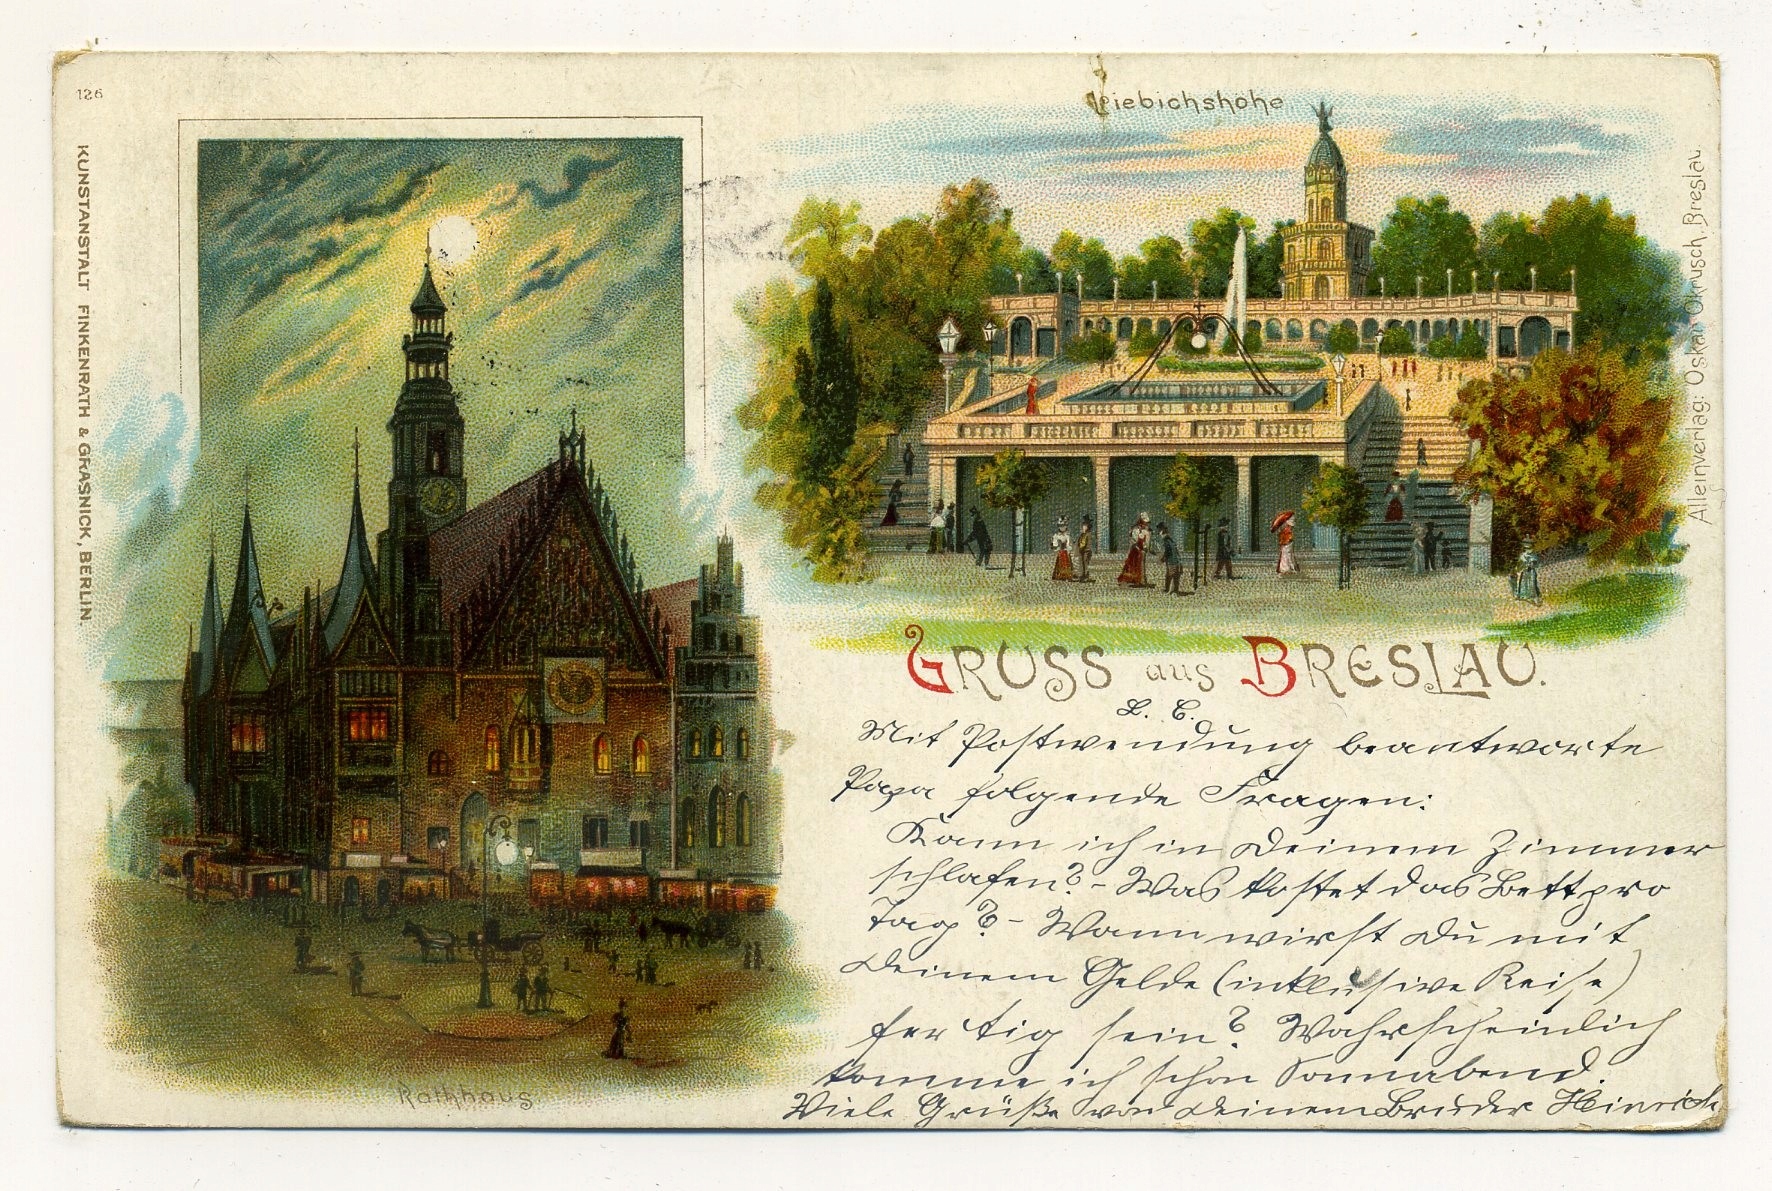 126
KUNSTANSTALT FINKENRATH & GRASNICK, BERLIN
Liebichshöhe
Alleinverlag: Oskar Okrusch, Breslau
GRUSS aus BRESLAU.
Rathhaus
L. C.
Mit Postwendung beantworte
Papa folgende Fragen:
Kann ich in Deinem Zimmer
schlafen? - Was kostet das Bett pro
Tag? - Wann wirst Du mit
Deinem Gelde (inklusive Reise)
fertig sein? Wahrscheinlich
komme ich schon Sonnabend.
Viele Grüße von Deinem Bruder Heinrich